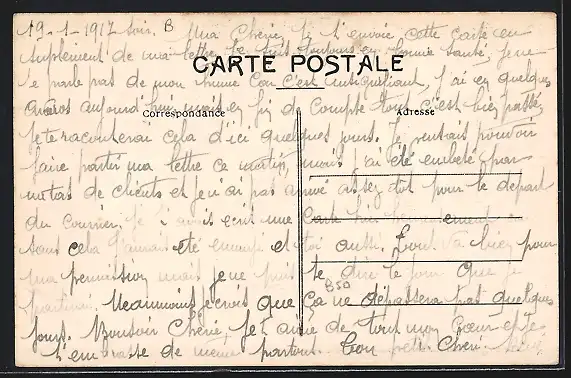 19-1-1917 soir. B Ma Chérie, Je t'envoie cette carte en
suplément de ma lettre. Je suis toujours en bonne santé, je ne
CARTE POSTALE
te parle pas de mon rhume car c'est insignifiant, j'ai eu quelques
aujourd'hui mais en fin de compte tout c'est bien passé,
Correspondance
Adresse
je te raconterai cela d'ici quelques jours. Je pensais pouvoir
faire partir ma lettre ce matin, mais j'ai été embêté par
un tas de clients et je n'ai pas arrivé assez tôt pour le départ
du courrier. Je t'avais écrit une carte
sans cela j'aurais été ennuyé et toi aussi. Tout va bien pour
ma permission mais je ne puis te dire le jour que je
partirai. Néanmoins je crois que ça ne dépassera pas quelques
B50
jours. Bonsoir Chérie, Je t'aime de tout mon cœur et je
t'embrasse de même partout. Ton petit Chéri